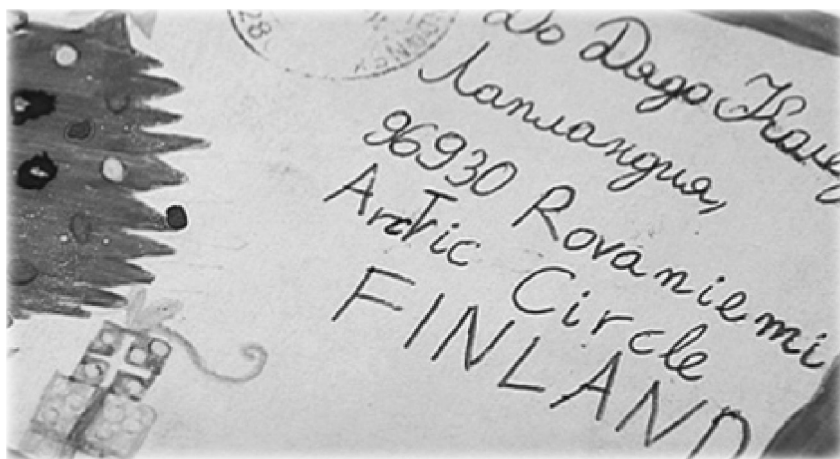 28
До Дядо Колед
Лапландия,
96930 Rovaniemi
Arctic Circle
FINLAND